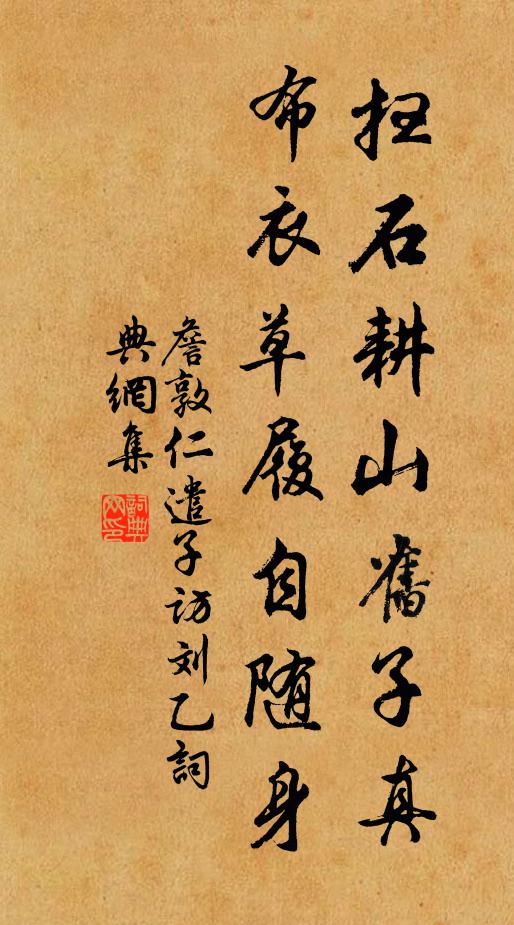 扫石耕山舊子真
布衣草履自随身
詹敦仁遣子访刘乙詞
典網集
詞典
网印